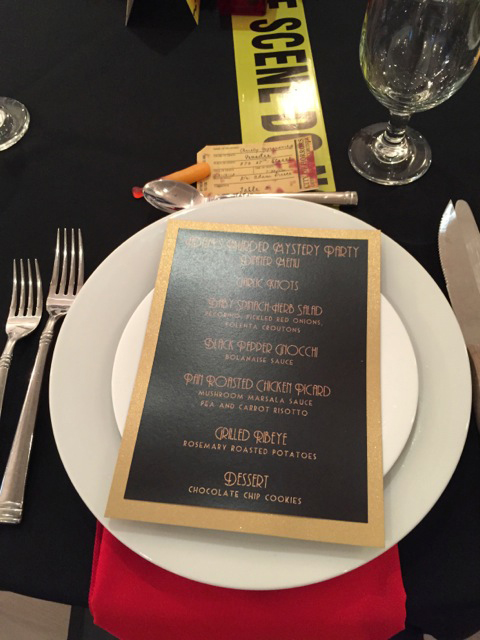 SCENE DO
MURDER MYSTERY PARTY
DINNER MENU
GARLIC KNOTS
BABY SPINACH HERB SALAD
PECORINO, PICKLED RED ONIONS,
POLENTA CROUTONS
BLACK PEPPER GNOCCHI
BOLANAISE SAUCE
PAN ROASTED CHICKEN PICARD
MUSHROOM MARSALA SAUCE
PEA AND CARROT RISOTTO
GRILLED RIBEYE
ROSEMARY ROASTED POTATOES
DESSERT
CHOCOLATE CHIP COOKIES